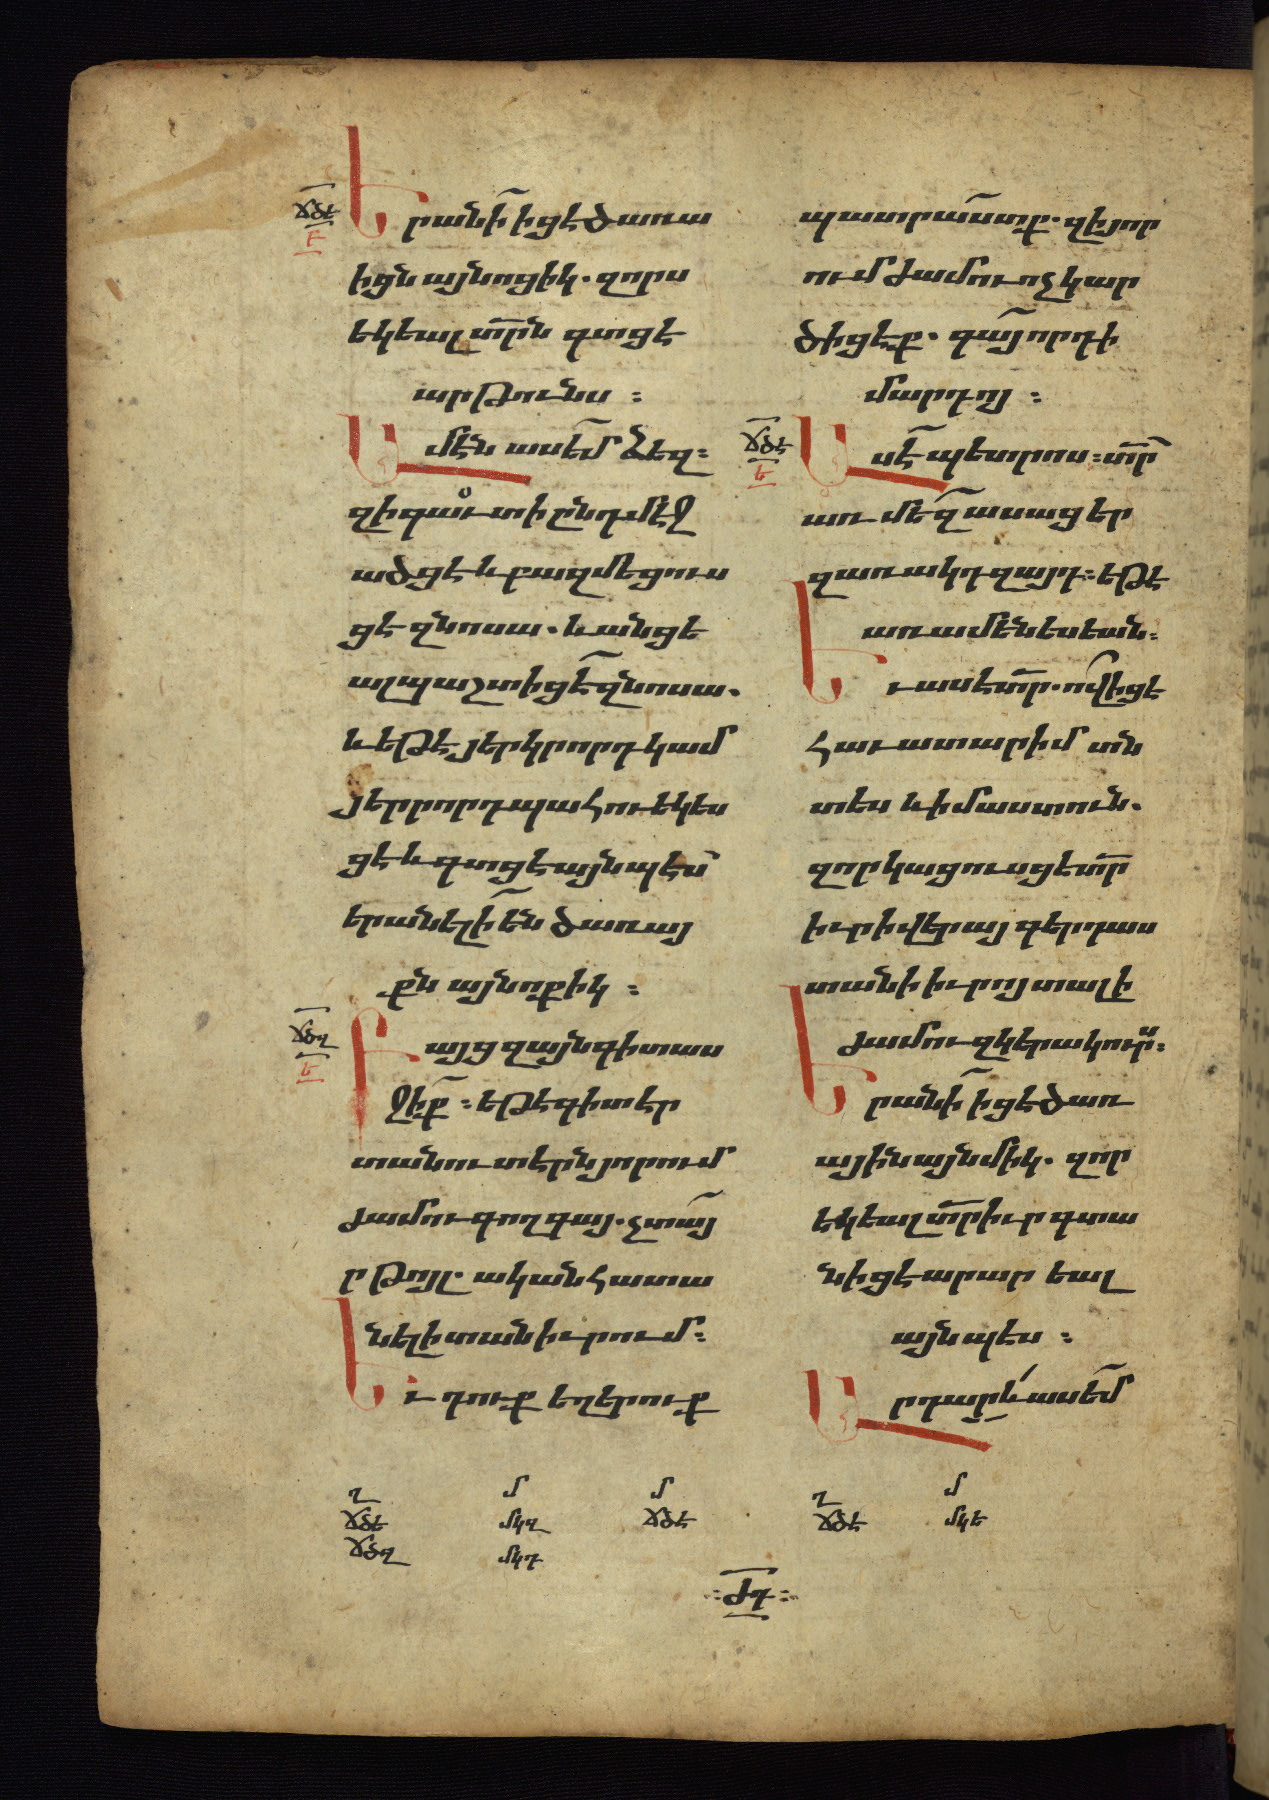 Երանի իցէ ծառա
իցն այնոցիկ. զորս
եկեալ տրն գտցէ
արթունս :
Ամէն ասեմ ձեզ :
զի գաւտի ընդ մէջ
ածցէ և բազմեցուս
ցէ զնոսա. և անցե
ալ պաշտիցէ զնոսա.
և եթէ յերկրորդ կամ
յերրորդ պահու եկես
ցէ և գտցէ այնպէս
երանելի են ծառայ
քն այնոքիկ :
Բայց զայն գիտաս
ջիք : եթէ գիտէր
տանուտէրն յորում
ժամու գող գայ. չտայ
ր թոյլ ական հատա
նել ի տան իւրում :
Եւ դուք եղերուք
պատրաստք. զի յոր
ում ժամու ոչ կար
ծիցէք. գայ որդի
մարդոյ :
Ասէ պետրոս : տր
առ մեզ ասացեր
զառակդ զայդ : եթէ
առ ամենեսեան :
Եւ ասէ տր. ով իցէ
հաւատարիմ տն
տես և իմաստուն.
զոր կացուսցէ տր
իւր ի վերայ գերդաս
տանի իւրոյ տալ ի
ժամու զկերակուր :
Երանի իցէ ծառ
ային այնմիկ. զոր
եկեալ տր իւր գտա
նիցէ արարեալ
այնպէս :
Արդարև ասեմ
ճծե
Բ
ճծզ
Ե
ճծէ
Ե
ղ մ մ ղ մ
ճծե մկգ ճծէ ճծէ մկե
ճծզ մկդ
ժդ